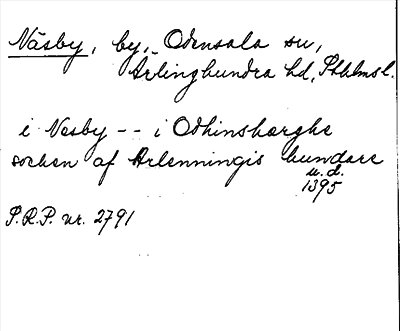 Näsby, by, Odensala sn,
Ärlinghundra hd, Sthlmsl.
i Nesby -- i Odhinsharghs
sochen af Ærlenningis hundare
u.d.
1395
S.R.P. nr. 2791